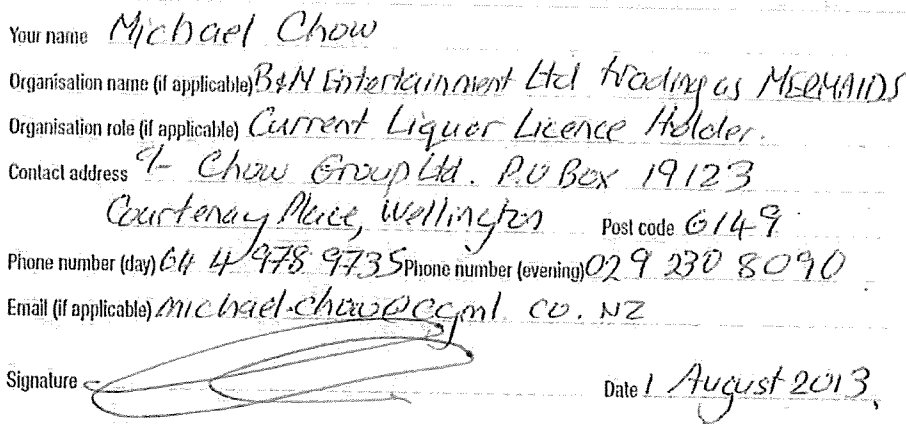 Your name Michael Chow
Organisation name (if applicable) B&M Entertainment Ltd trading as MERMAIDS
Organisation role (if applicable) Current Liquor Licence Holder.
Contact address c/- Chow Group Ltd. P.O Box 19123
Courtenay Place, Wellington Post code 6149
Phone number (day) 64 4 978 9735 Phone number (evening) 029 230 8090
Email (if applicable) michael.chow@ccml.co.NZ
Signature Date 1 August 2013.